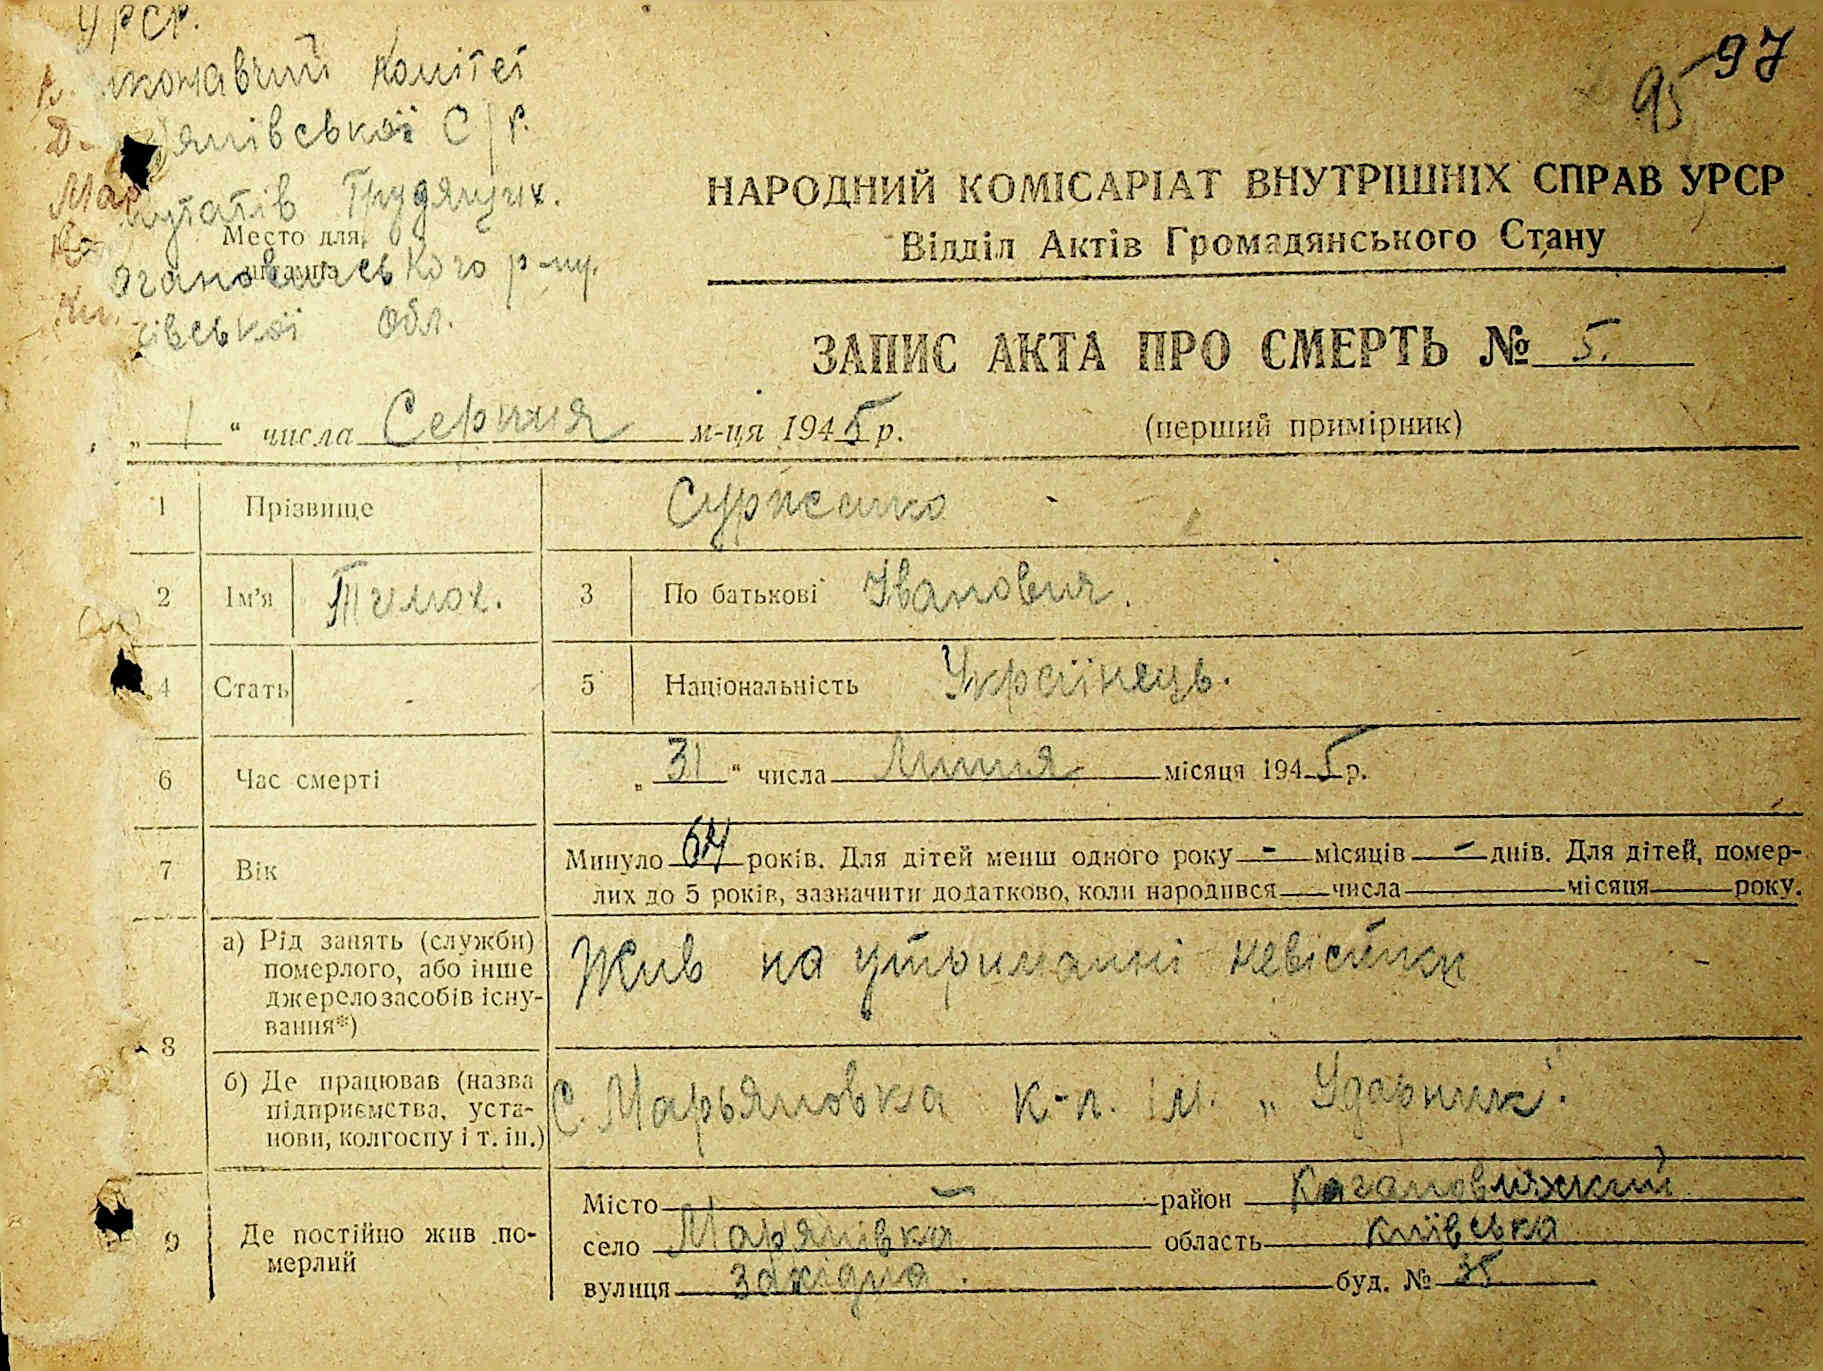 УРСР.
97
95
конавчий комітет
янівської С/Р.
Мар
путатів Трудящих.
Место для
штампа
агановичського р-ну.
ївської Обл.
НАРОДНИЙ КОМІСАРІАТ ВНУТРІШНІХ СПРАВ УРСР
Відділ Актів Громадянського Стану
ЗАПИС АКТА ПРО СМЕРТЬ № 5.
„ 1 “ числа Серпня м-ця 1945 р.
(перший примірник)
1 Прізвище
2 Ім'я Тимох. 3 По батькові Іванович.
4 Стать - 5 Національність Українець.
6 Час смерті „ 31 “ числа Липня місяця 1945 р.
7 Вік Минуло 67 років. Для дітей менш одного року - місяців - днів. Для дітей, помер-
лих до 5 років, зазначити додатково, коли народився числа місяця року.
8 а) Рід занять (служби)
померлого, або інше
джерело засобів існу-
вання*)
Жив на утриманні невістки
б) Де працював (назва
підприємства, уста-
нови, колгоспу і т. ін.)
С. Марьяновка к-п. ім. „Ударник".
9 Де постійно жив по-
мерлий
Місто — район
село Марянівка область Київська
вулиця Західна. буд. № 35